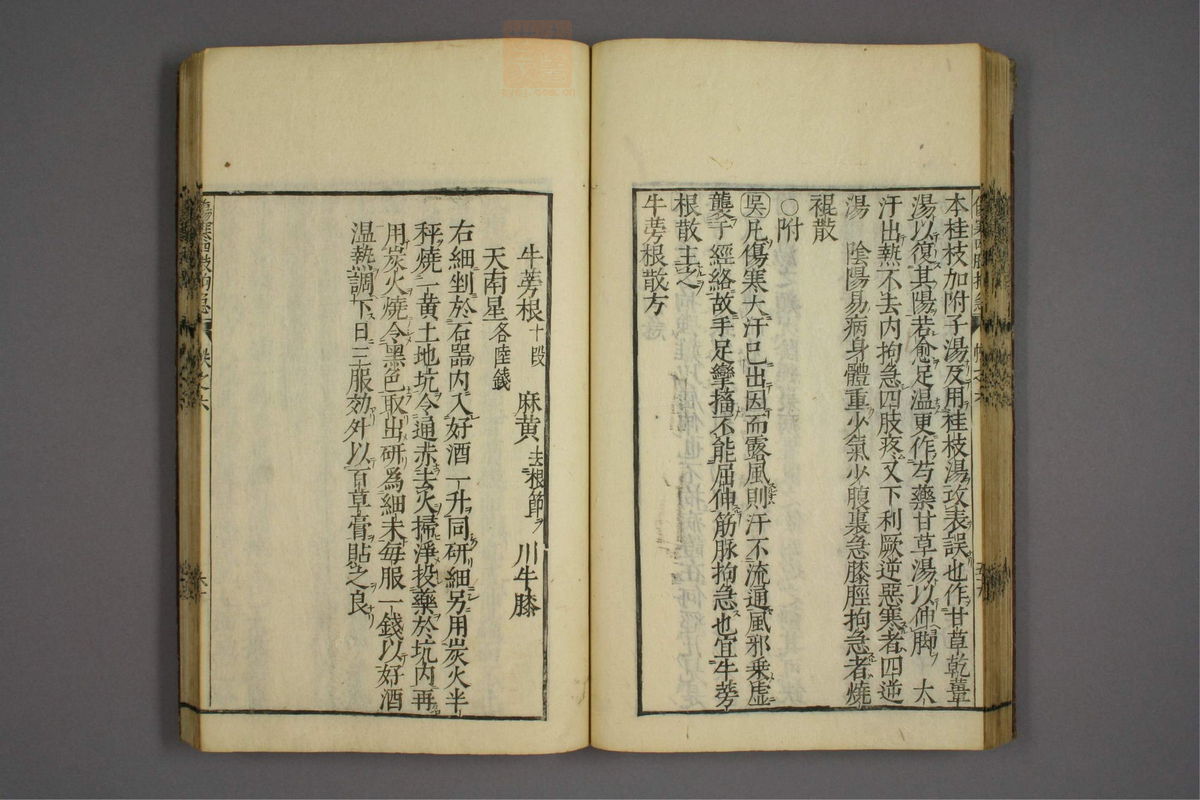 本桂枝加附子湯反用桂枝湯攻表誤也作甘草乾薑
湯以復其陽若愈足温更作芍藥甘草湯以伸脚　太
汗出熱不去内拘急四肢疼又下利厥逆惡寒者四逆
湯　陰陽易病身體重少氣少腹裏急膝脛拘急者燒
裩散
○附
吳凡傷寒大汗已出因而露風則汗不流通風邪乗虚
襲于經絡故手足攣搐不能屈伸筋脉拘急也宜牛蒡
根散主之
牛蒡根散方
牛蒡根十段　麻黄去根節　川牛膝
天南星各陸錢
右細剉於石器内入好酒一升同研細另用炭火半
秤燒一黄土地坑令通赤去火掃淨投藥於坑内再
用炭火燒令黑色取出研爲細末毎服一錢以好酒
温熱調下日三服効外以百草膏貼之良